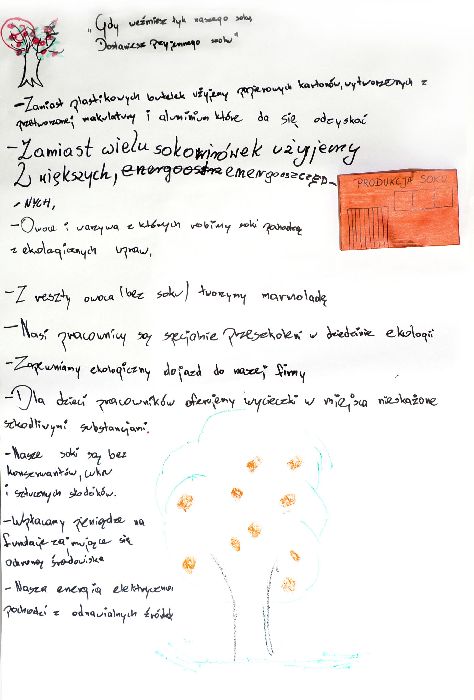 "Gdy weźmiesz łyk naszego soku,
Dostaniesz przyjemnego szoku"
- Zamiast plastikowych butelek użyjemy papierowych kartonów, wytworzonych z
przetworzonej makulatury i aluminium które da się odzyskać
- Zamiast wielu sokowirówek użyjemy
2 większych, energooszczęd-
nych,
PRODUKCJA SOKU
- Owoce i warzywa z których robimy soki pochodzą
z ekologicznych upraw,
- Z reszty owoca (bez soku) tworzymy marmoladę
- Nasi pracownicy są specjalnie przeszkoleni w dziedzinie ekologii
- Zapewniamy ekologiczny dojazd do naszej firmy
- Dla dzieci pracowników oferujemy wycieczki w miejsca nieskażone
szkodliwymi substancjami.
- Nasze soki są bez
konserwantów, cukru
i sztucznych słodzików.
- Wpłacamy pieniądze na
fundacje zajmujące się
ochroną środowiska
- Nasza energia elektryczna
pochodzi z odnawialnych źródeł